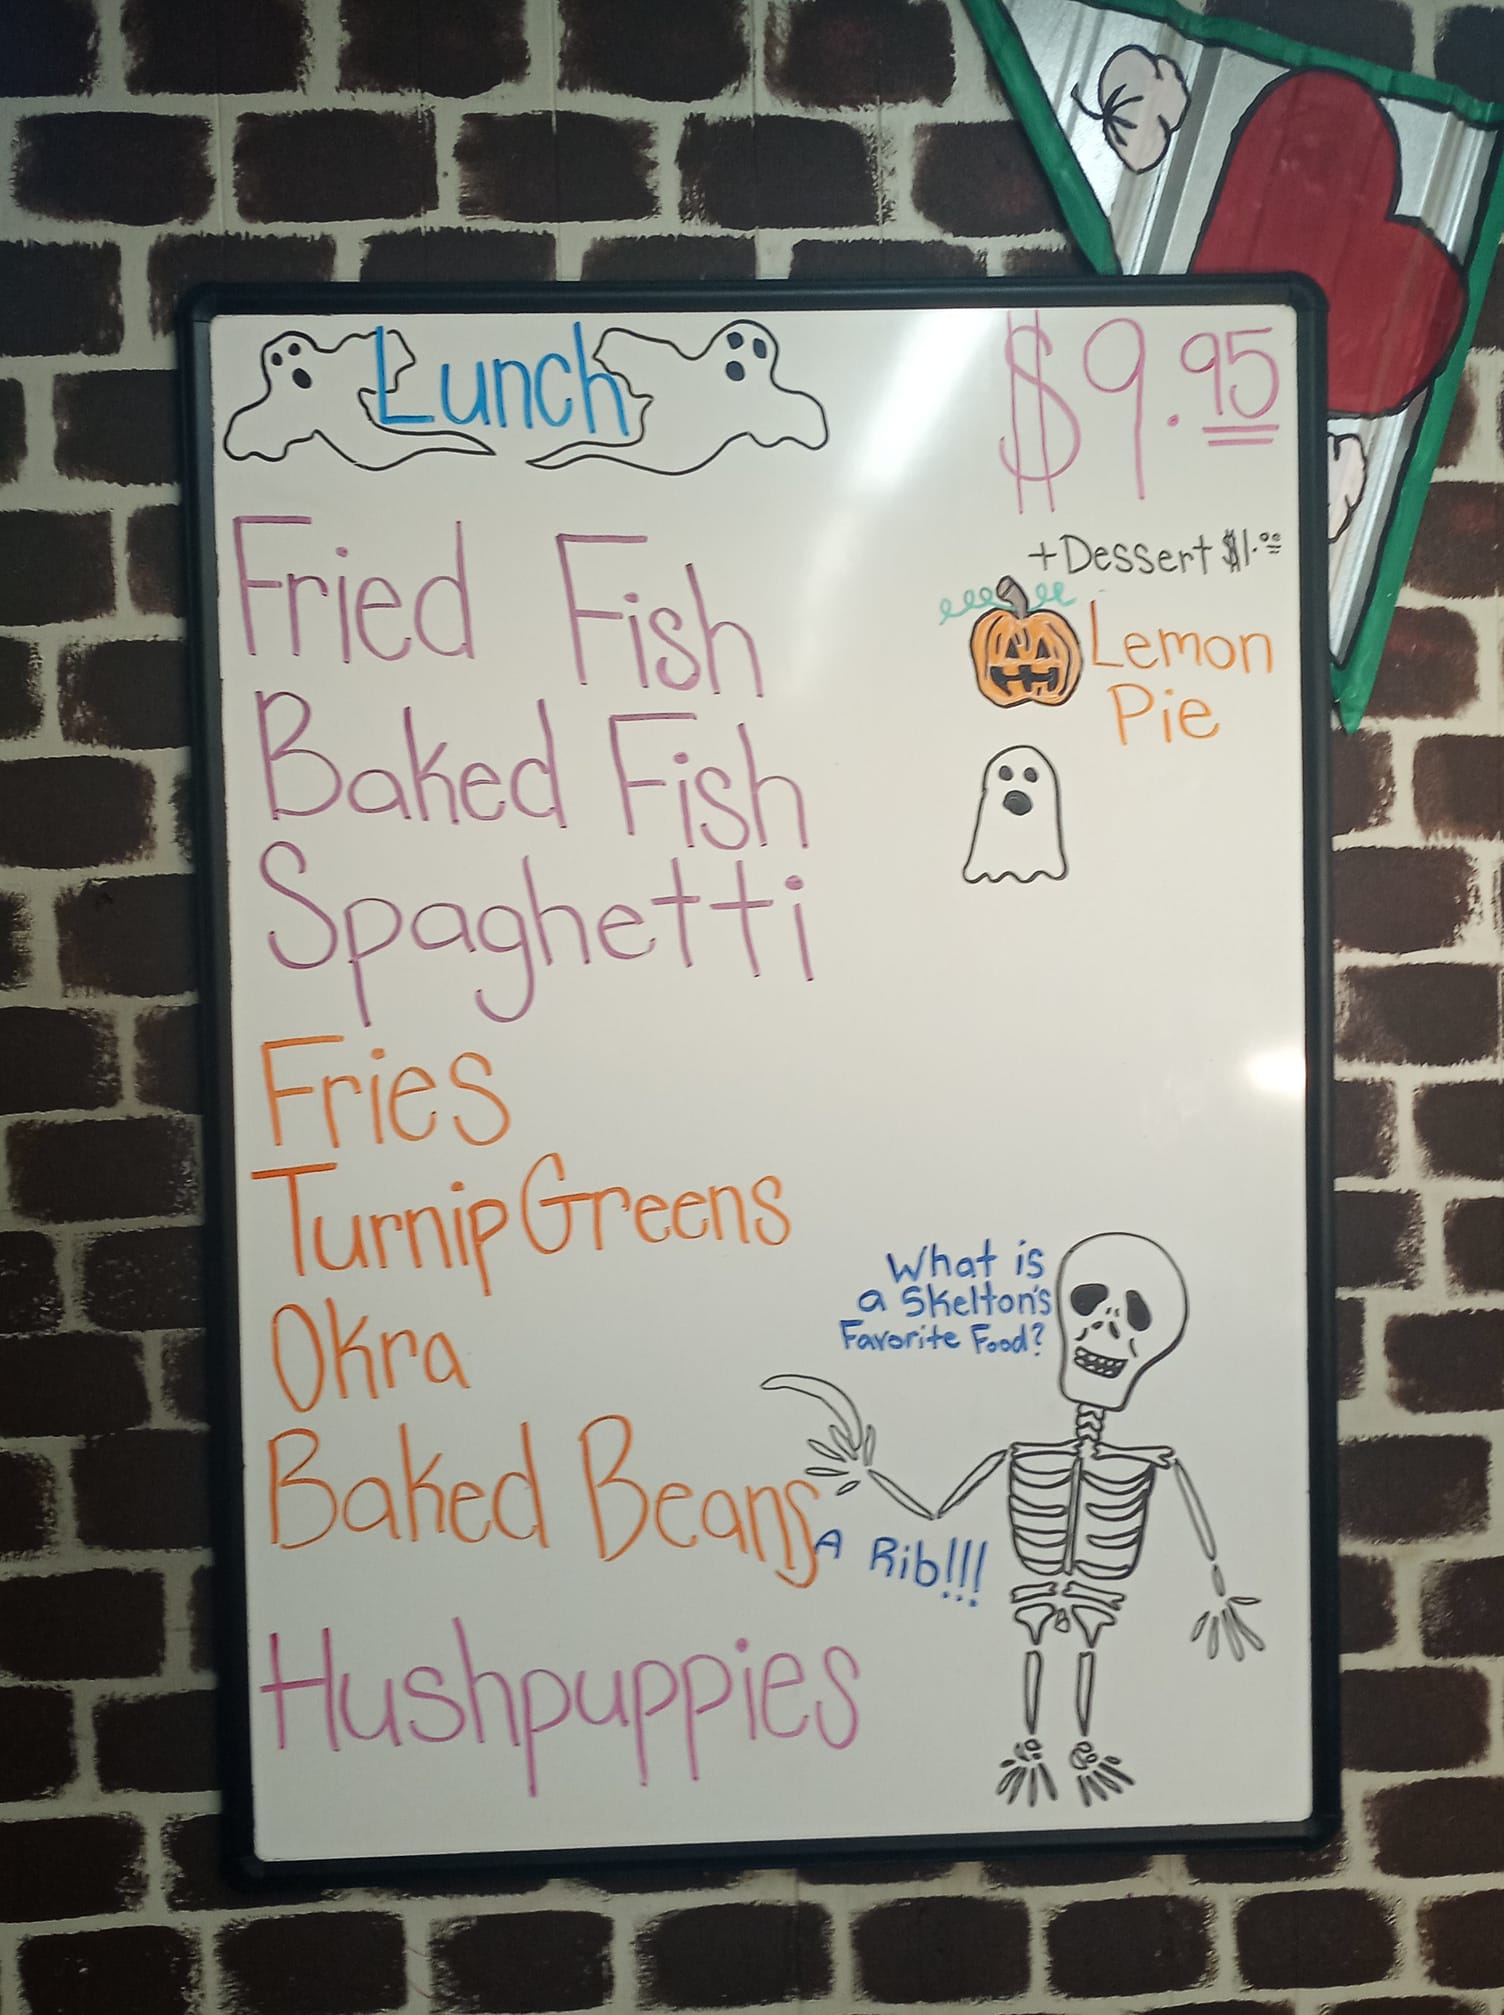 Lunch
$9.95
+Dessert $1.00
Lemon
Pie
Fried Fish
Baked Fish
Spaghetti
Fries
Turnip Greens
Okra
Baked Beans
Hushpuppies
What is
a Skelton's
Favorite Food?
A Rib!!!